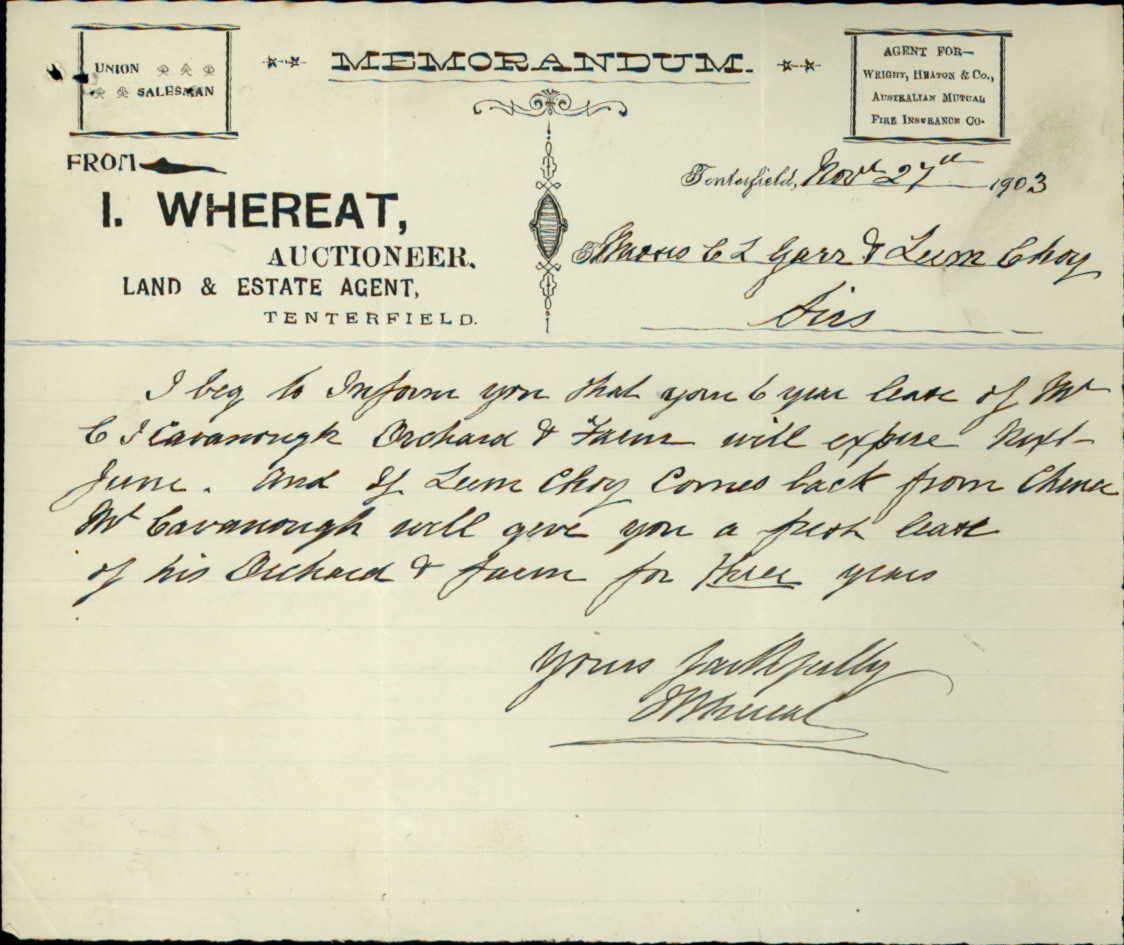 UNION
SALESMAN
MEMORANDUM.
AGENT FOR—
WRIGHT, HEATON & Co.,
AUSTRALIAN MUTUAL
FIRE INSURANCE CO.
FROM
I. WHEREAT,
AUCTIONEER,
LAND & ESTATE AGENT,
TENTERFIELD.
Tenterfield, Novr 27th 1903
Messrs C L Garr & Leum Choy
Sirs
I beg to Inform you that your 6 year lease of Mr
C J Cavanough Orchard & Farm will expire Next
June. And If Leum Choy Comes back from China
Mr Cavanough will give you a fresh lease
of his Orchard & farm for Three years
Yours faithfully
I Whereat